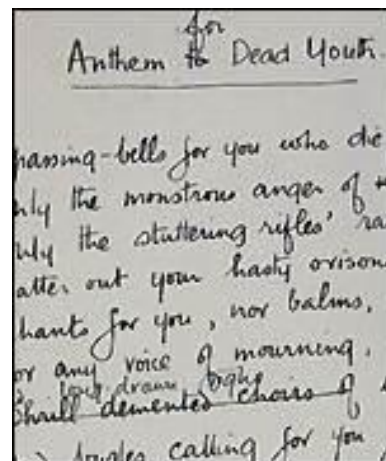 for
Anthem to Dead Youth.
passing-bells for you who die
nly the monstrous anger of
nly the stuttering rifles' ra
atter out your hasty orison
hants for you, nor balms,
or any voice of mourning,
long-drawn sighs
Shrill demented choirs of
bugles calling for you